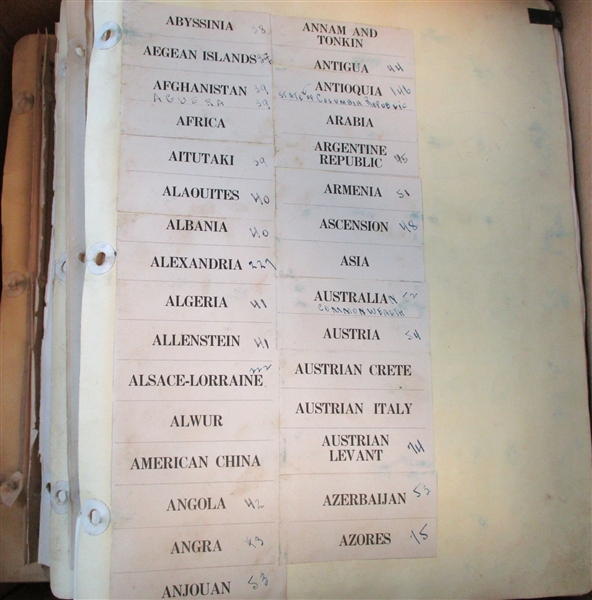 ABYSSINIA 38
AEGEAN ISLANDS
AFGHANISTAN 39
AGUERA 39
AFRICA
AITUTAKI 39
ALAOUITES 40
ALBANIA 40
ALEXANDRIA 227
ALGERIA 41
ALLENSTEIN 41
ALSACE-LORRAINE 222
ALWUR
AMERICAN CHINA
ANGOLA 42
ANGRA 43
ANJOUAN 53
ANNAM AND
TONKIN
ANTIGUA 44
ANTIOQUIA 146
STATE OF COLUMBIA REPUBLIC
ARABIA
ARGENTINE
REPUBLIC 45
ARMENIA 51
ASCENSION 48
ASIA
AUSTRALIAN 52
COMMONWEALTH
AUSTRIA 54
AUSTRIAN CRETE
AUSTRIAN ITALY
AUSTRIAN
LEVANT 74
AZERBAIJAN 53
AZORES 15